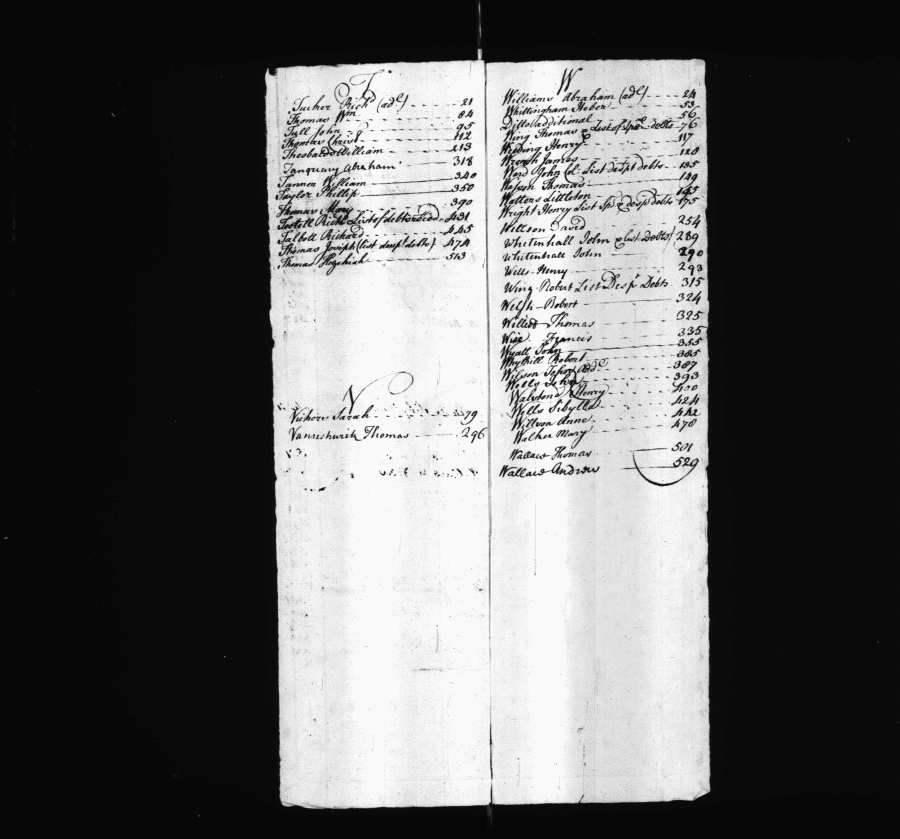 T
Tucker Richd (adl) 21
Thomas Wm 84
Tull John 95
Thomas Christ 112
Theobald William 213
Tanquary Abraham 318
Tannon William 340
Taylor Phillip 350
Thomas Mary 390
Tootell Richd List of debts 431
Talbott Richard 445
Thomas Joseph (list desp debts) 474
Thomas Hezekiah 513
V
Sarah 79
Thomas 296
W
Williams Abraham (adl) 24
Whittingham Heber 53
Ditto additional 56
Wing Thomas List of Spe debts 76
Henry 117
James 128
Ward John Col. List desp debts 135
Thomas 149
Watters Littleton 165
Wright Henry List Sp & desp debts 175
Willson David 254
Whitenhall John & List Debts 289
Whitenhall John 290
Wells Henry 293
Wing Robert List Desp Debts 315
Welsh Robert 324
Willett Thomas 325
Wise Francis 335
Wyatt John 355
Robert 385
387
Wells John 393
Henry 400
Wells Sibylla 424
Willson Anne 442
Walker Mary 478
Wallace Thomas 501
Wallace Andrew 529